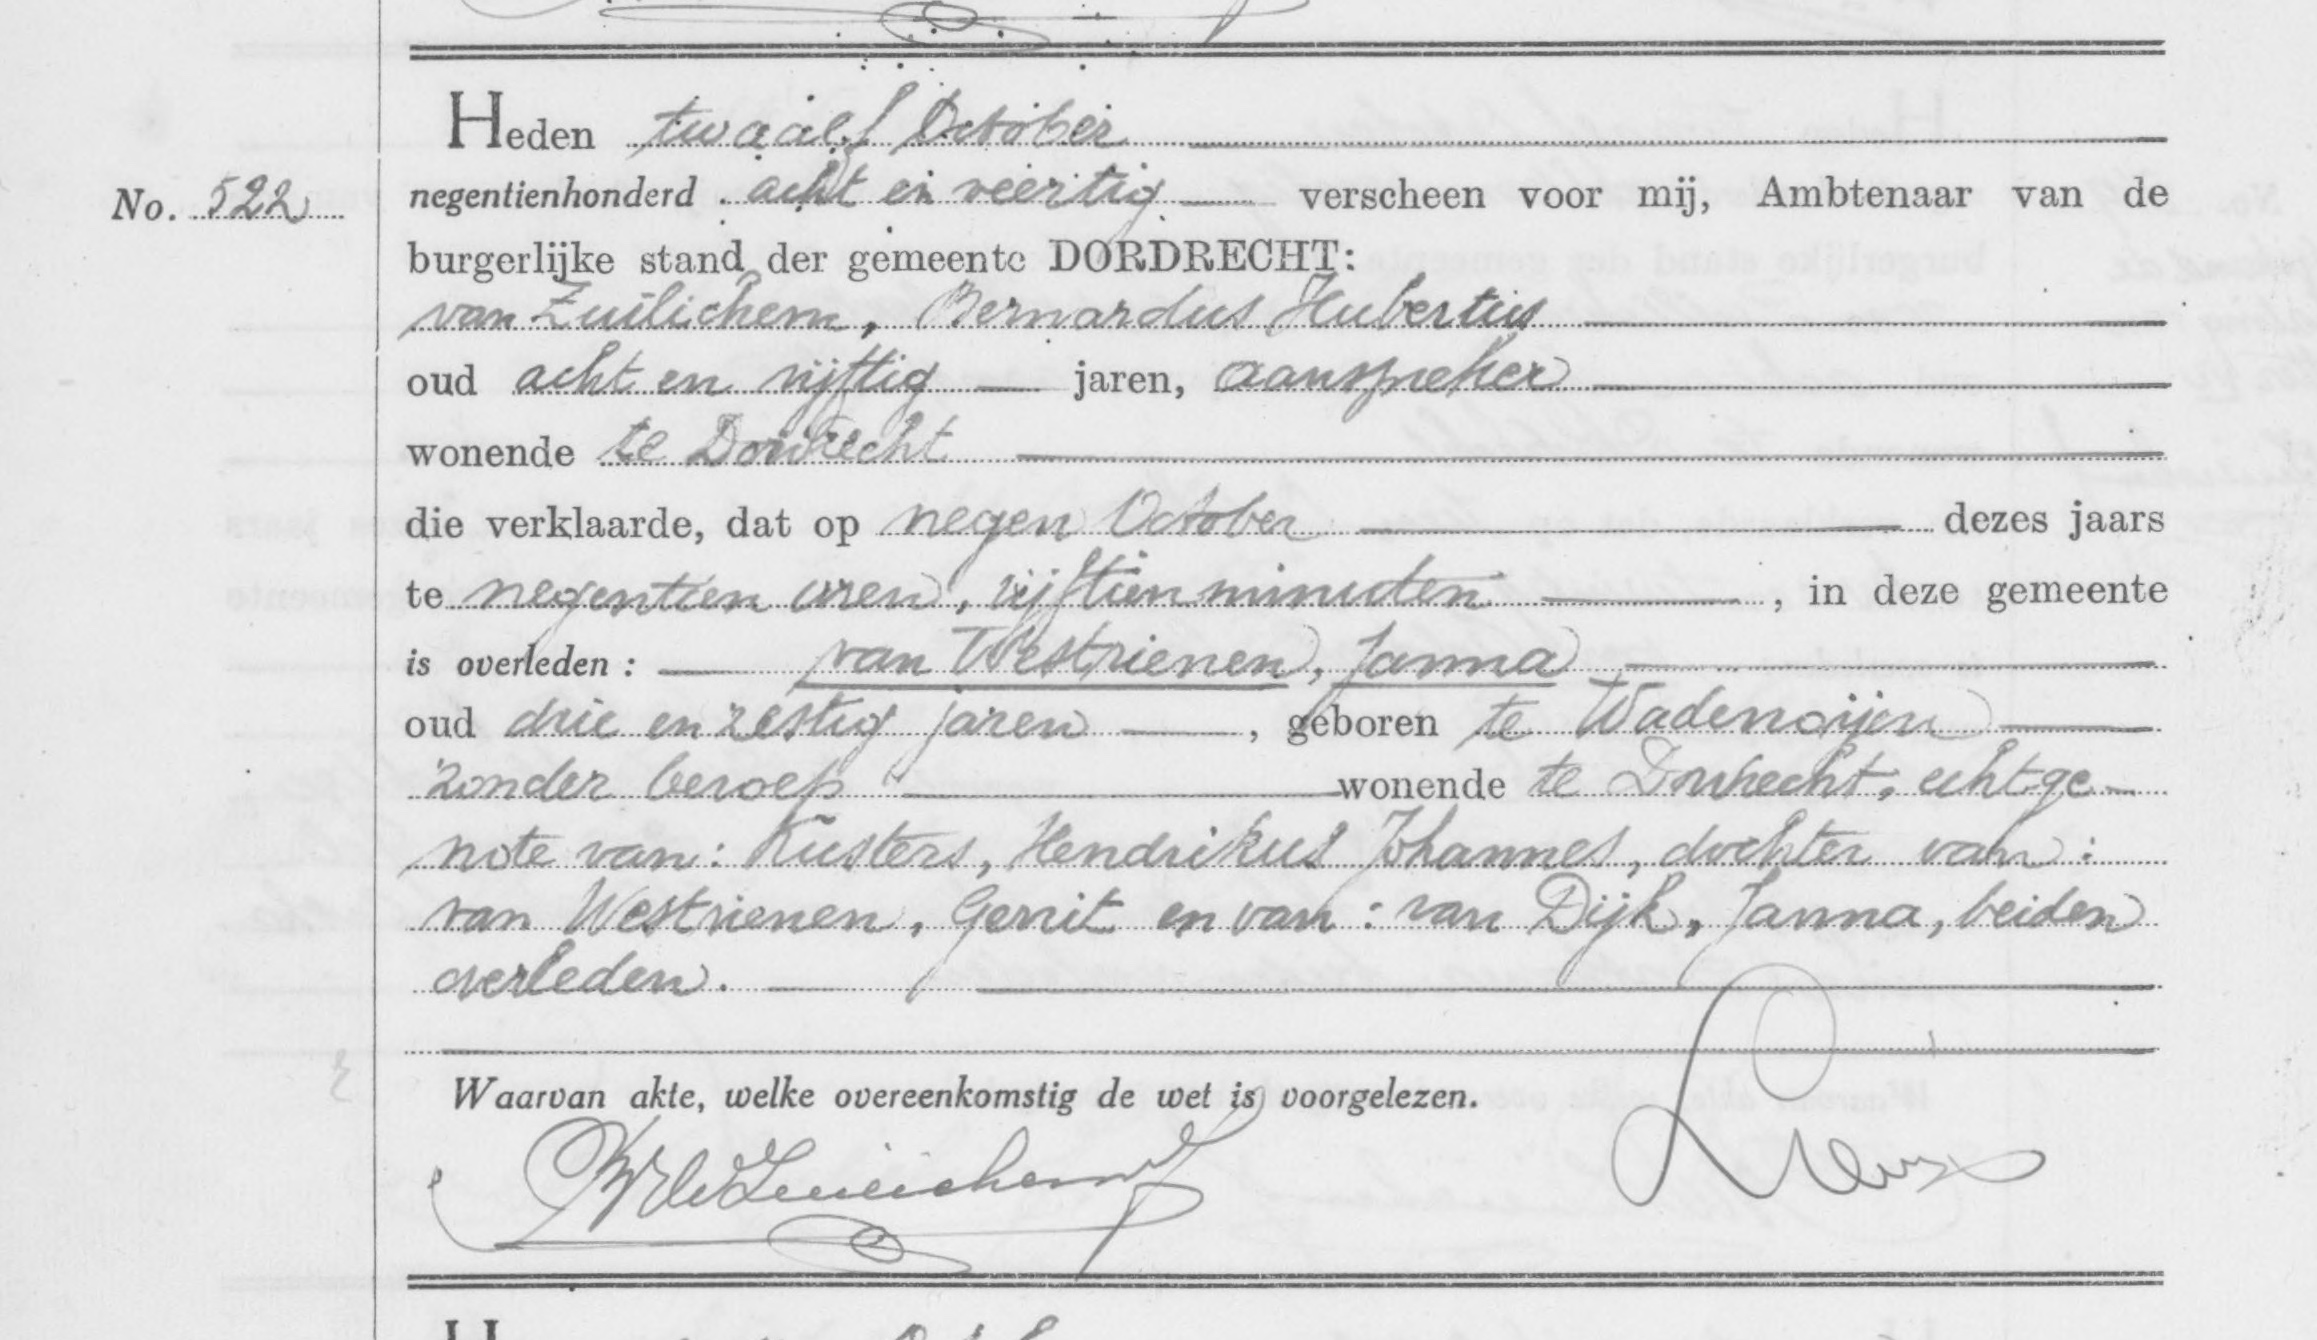 Heden twaalf October
No. 522
negentienhonderd acht en veertig verscheen voor mij, Ambtenaar van de
burgerlijke stand der gemeente DORDRECHT:
van Zuilichem, Bernardus Hubertus
oud acht en vijftig jaren, aanspreker
wonende te Dordrecht
die verklaarde, dat op negen October dezes jaars
te negentien uren, vijftien minuten, in deze gemeente
is overleden: van Westrienen, Janna
oud drie en zestig jaren, geboren te Wadenoijen
zonder beroep wonende te Dordrecht, echtge-
note van: Kusters, Hendrikus Johannes, dochter van:
van Westrienen, Gerrit en van: van Dijk, Janna, beiden
overleden.
Waarvan akte, welke overeenkomstig de wet is voorgelezen.